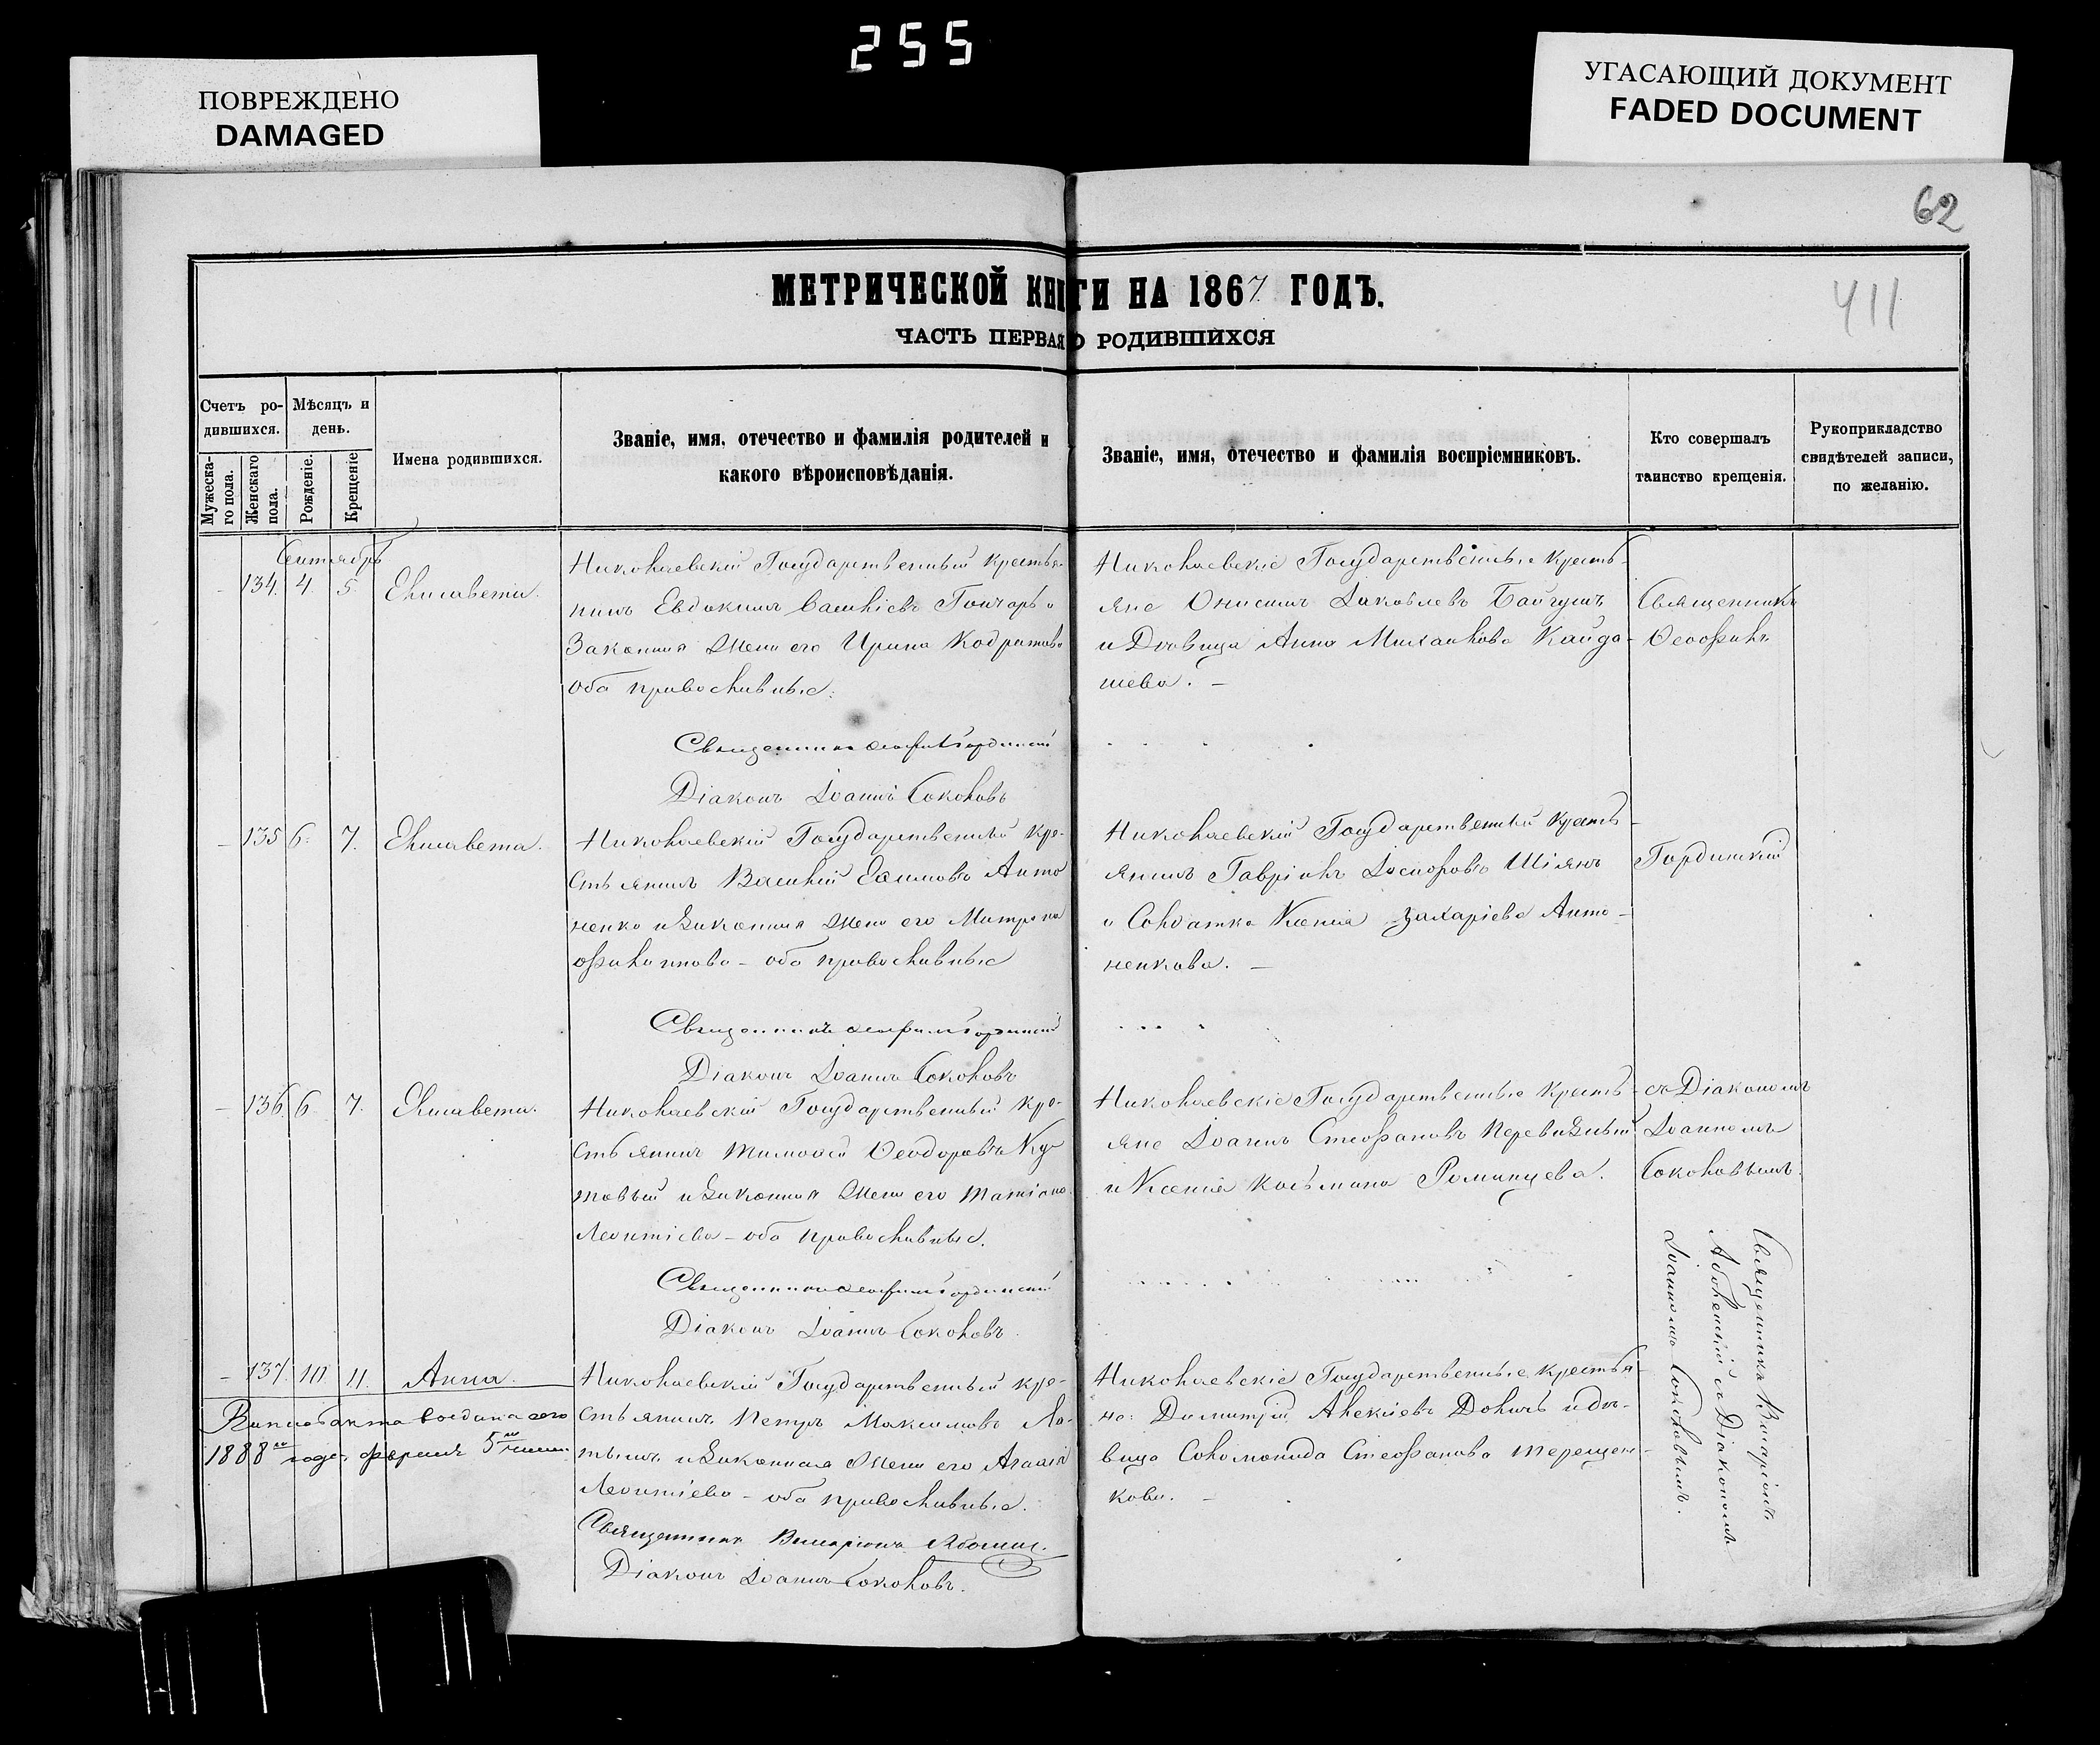 255
ПОВРЕЖДЕНО
DAMAGED
УГАСАЮЩИЙ ДОКУМЕНТ
FADED DOCUMENT
62
411
МЕТРИЧЕСКОЙ КНИГИ НА 1867 ГОДЪ.
ЧАСТЬ ПЕРВАЯ О РОДИВШИХСЯ
Счетъ ро-
дившихся.
Мужеска-
го пола.
Женскаго
пола.
Мѣсяцъ и
день.
Рожденіе.
Крещеніе
Имена родившихся.
Званіе, имя, отечество и фамилія родителей и
какого вѣроисповѣданія.
Званіе, имя, отечество и фамилія воспріемниковъ.
Кто совершалъ
таинство крещенія.
Рукоприкладство
свидѣтелей записи,
по желанію.
Сентябрь
134. 4. 5. Елисавета.
Николаевский Государственный крестья-
нинъ Евдокимъ Гончаръ и
Законная жена его Ирина Кодратова
оба православные.
Священникъ Гординский
Діаконъ Іоаннъ Соколовъ
Николаевскіе Государственные кресть-
яне Онисимъ Іаковлевъ Байгушъ
и Дѣвица Анна Михаилова Кайда-
шева. –
Священникъ
Ѳеофилъ
135 6. 7. Елисавета.
Николаевский Государственный кре-
стьянинъ Василий Ефимовъ Анто
ненко и Законная жена его Матрона
Филиппова – оба православные
Священникъ Гординский
Діаконъ Іоаннъ Соколовъ
Николаевский Государственный кресть-
янинъ Гавріилъ Іосифовъ Шіянъ
и Солдатка Ксенія Захаріева Анто-
ненкова. –
Гординский
136. 6. 7. Елисавета.
Николаевский Государственный кре-
стьянинъ Тимофей Ѳеодоровъ Ку
товый и Законная жена его Татіана
Леонтіева – оба православные.
Священникъ Гординский
Діаконъ Іоаннъ Соколовъ.
Николаевскіе Государственные кресть-
яне Іоаннъ Стефановъ Перевизный
и Ксенія Косьмина Романцева.
съ Діакономъ
Іоанномъ
Соколовымъ.
137. 10. 11. Анна.
1888 года февраля 5
Николаевский Государственный кре-
стьянинъ Петръ Максимовъ Ло-
тышъ и Законная жена его Агафія
Леонтіева – оба православные.
Священникъ
Діаконъ Іоаннъ Соколовъ.
Николаевскіе Государственные крестья-
не: Димитрій Алексіевъ Долишь и дѣ-
вица Соломонида Стефанова Терещен-
кова. –
Священникъ
съ Діакономъ
Іоанномъ Соколовымъ.